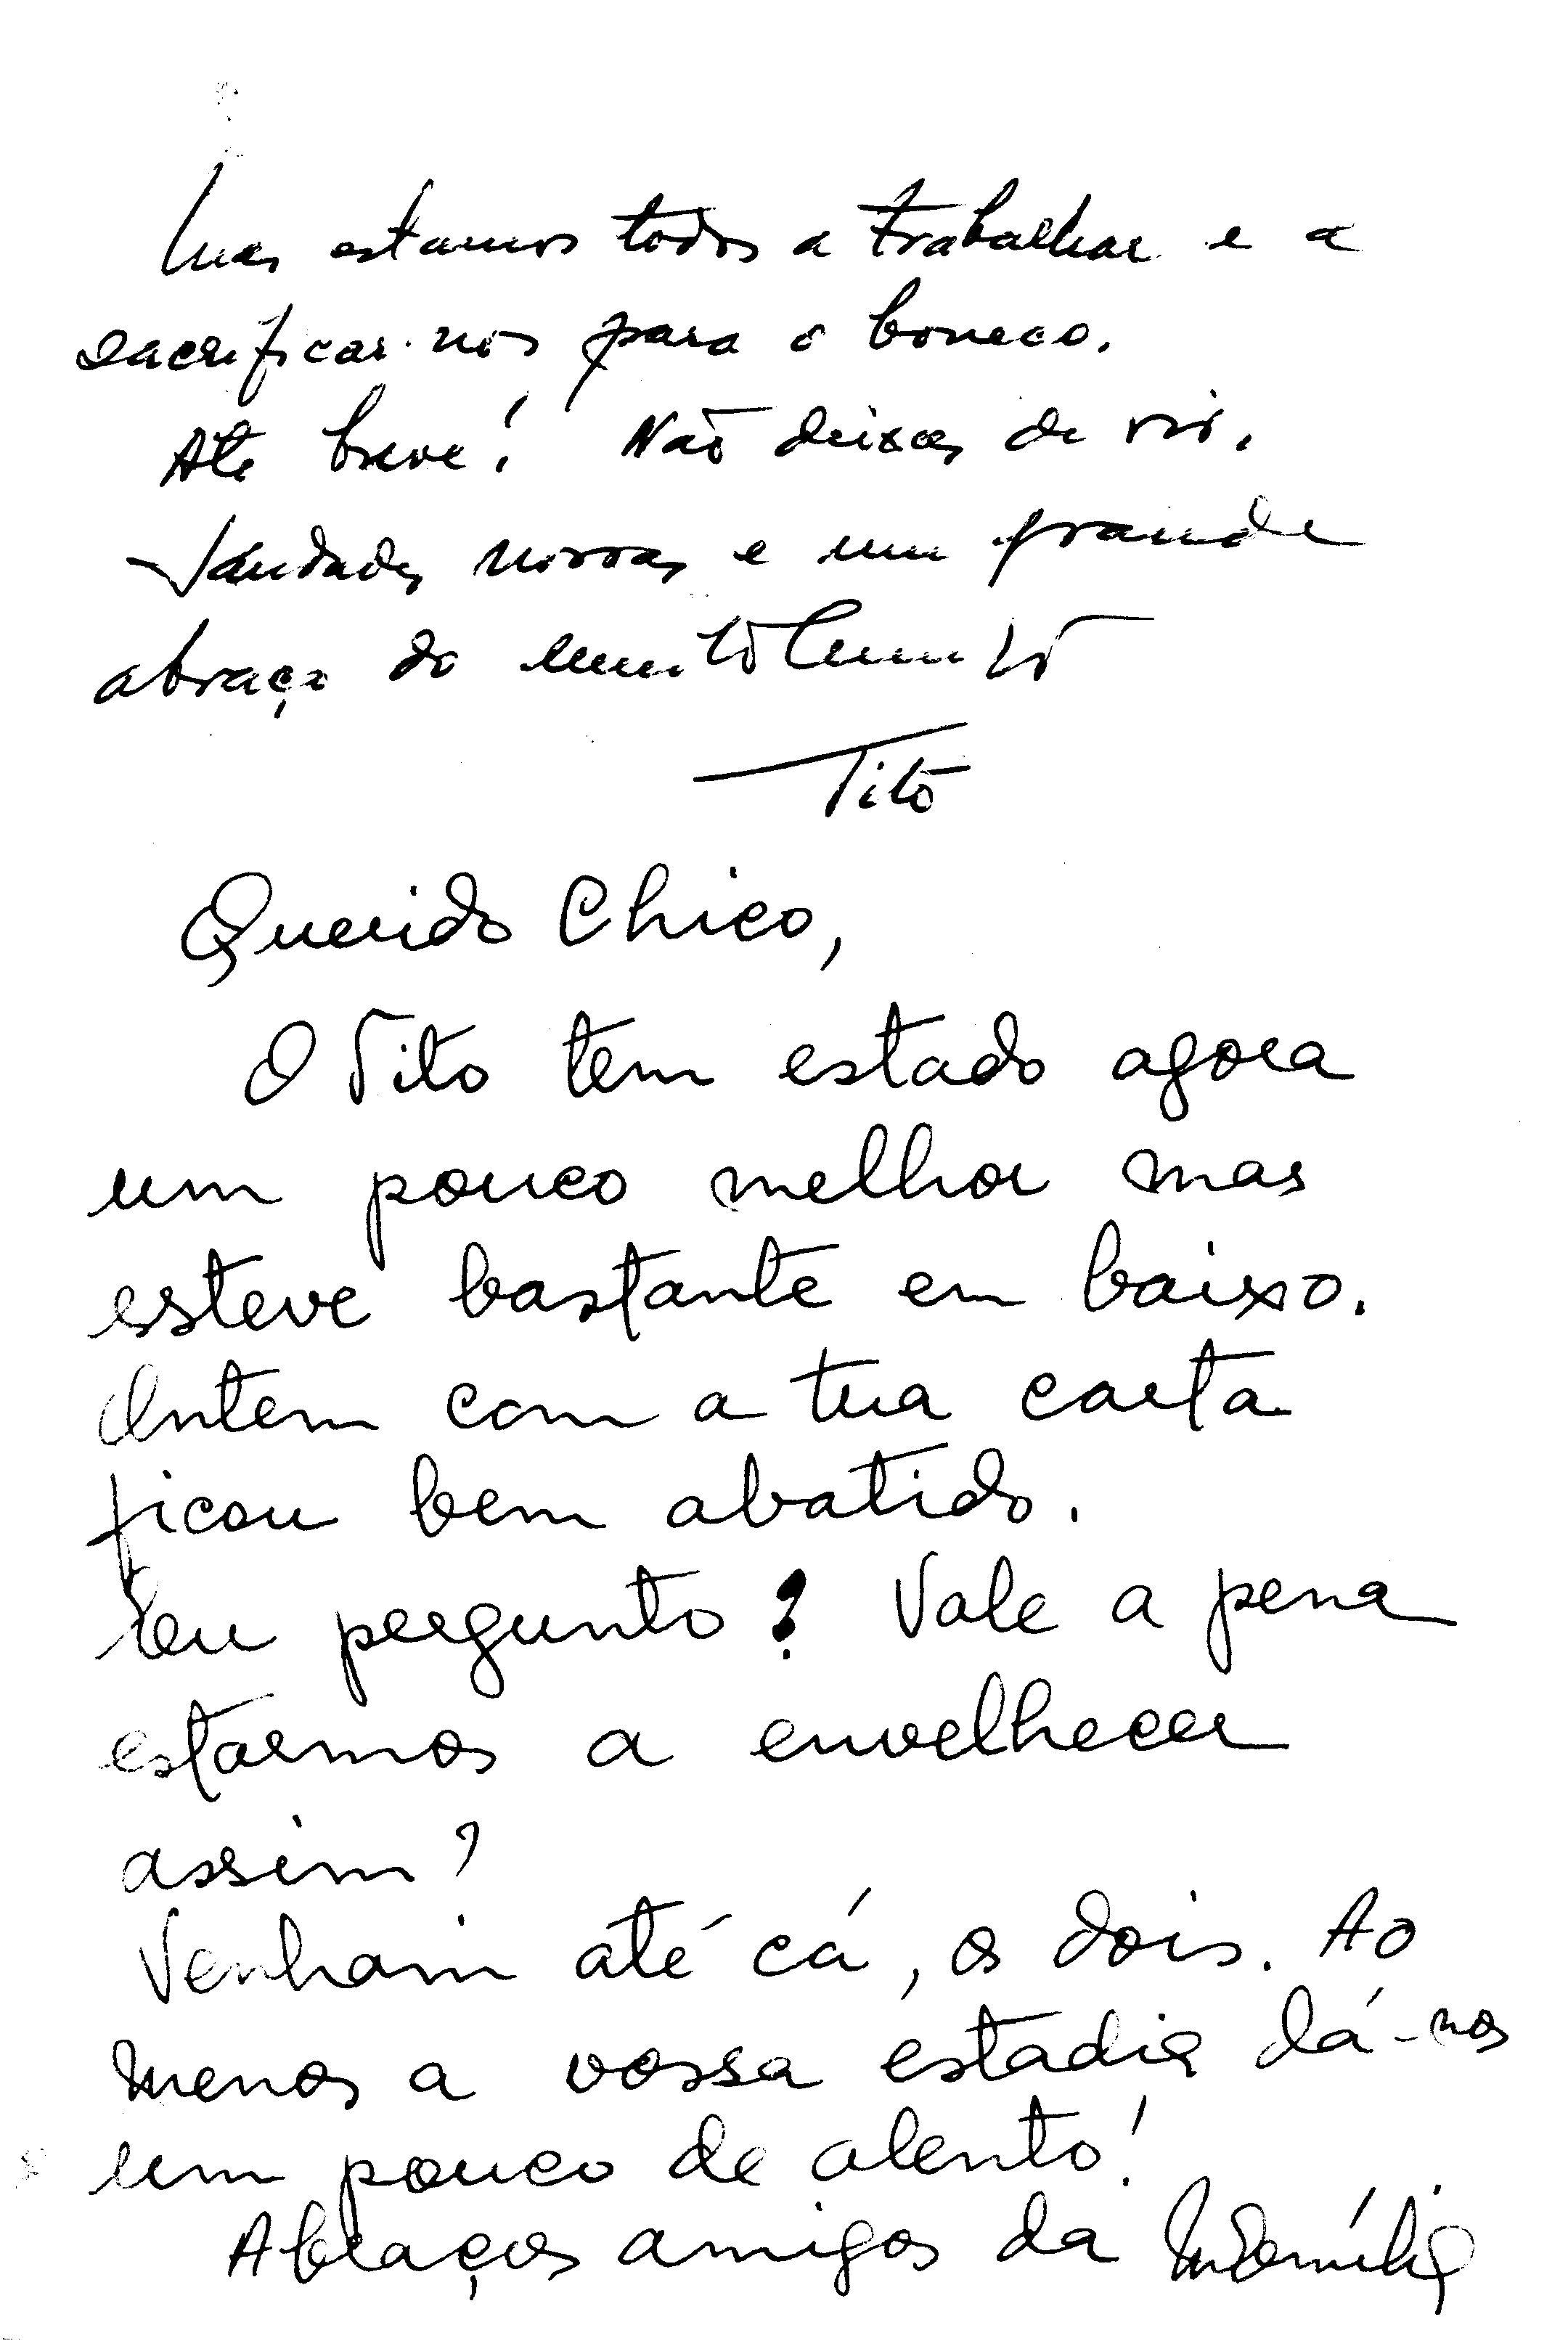 mas estamos todos a trabalhar e a
sacrificar-nos para o boneco.
Até breve! Não deixes de vir.
Saudades nossas e um grande
abraço do muito
Tito
Querido Chico,
O Tito tem estado agora
um pouco melhor mas
esteve bastante em baixo.
Ontem com a tua carta
ficou bem abatido.
Eu pergunto? Vale a pena
estarmos a envelhecer
assim?
Venham até cá, os dois. Ao
menos a vossa estadia dá-nos
um pouco de alento!
Abraços amigos da